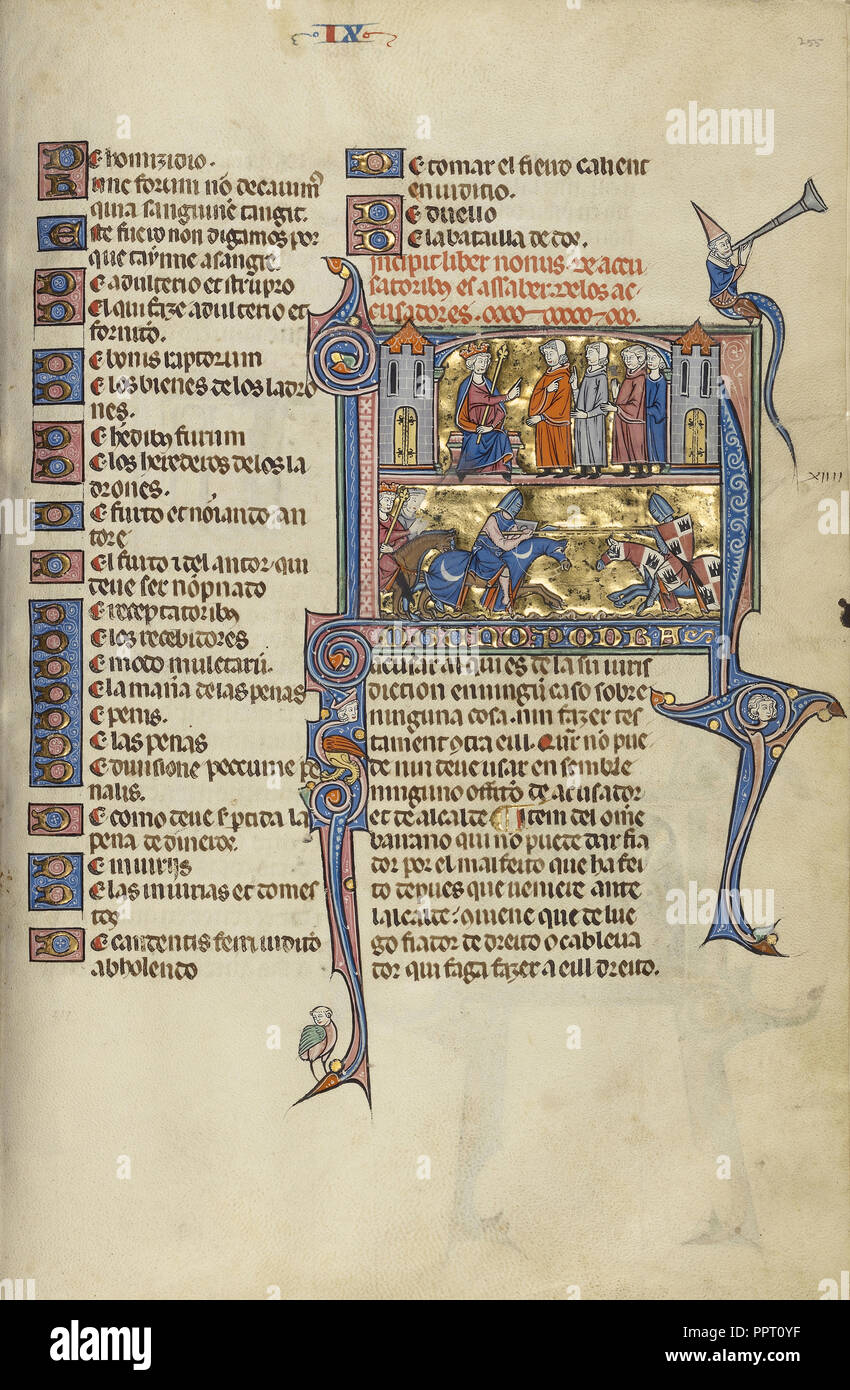 IX
255
De homizidio.
hunc forum nō decaum᷒
quia sanguinē tangit.
Este fuero non digamos por
que taynne a sangre.
De adulterio et strupro
Del qui faze adulterio et
fornicio.
De bonis raptorum
De los bienes de los ladro
nes.
De hēdibus furum
De los herederos de los la
drones.
De furto et nōīando au
tore
Del furto ⁊ del autor qui
deue ser nōpnado
De receptatoribus
De los recebidores
De modo
De la mañā de las penas
De penis.
De las penas
De diuisione peccunie pe
nalis.
De como deue ser partida la
pena de dineros.
De iniuriis
De las iniurias et domes
tos
De candentis ferri iuditio
abholendo
De tomar el fierro calient
en iuditio.
De duello
De la batailla de dos.
Incipit liber nonus. De accu
satoribus es assaber. Delos ac
cusadores.
XIIII
NINGUNO PODRA
acusar al qui es de la su iuris
diction en ningū caso sobre
ninguna cosa. nin fazer tes
tament cōtra eill. Qar nō pue
de nin deue usar en semble
ninguno offitio de acusador
et de alcalde Item del omē
barrano qui no puede dar fia
dor por el malfeito que ha fei
to depues que ueniere ante
lalcalde. conuiene que de lue
go fiador de dreito o cableua
dor qui faga fazer a eill dreito.
alamy
Image ID: PPT0YF
www.alamy.com